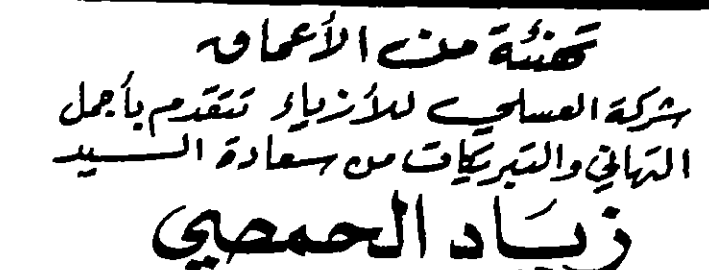 تهنئة من الأعماق
شركة العسلي للأزياء تتقدم بأجمل
التهاني والتبريكات من سعادة السيد
زياد الحمصي